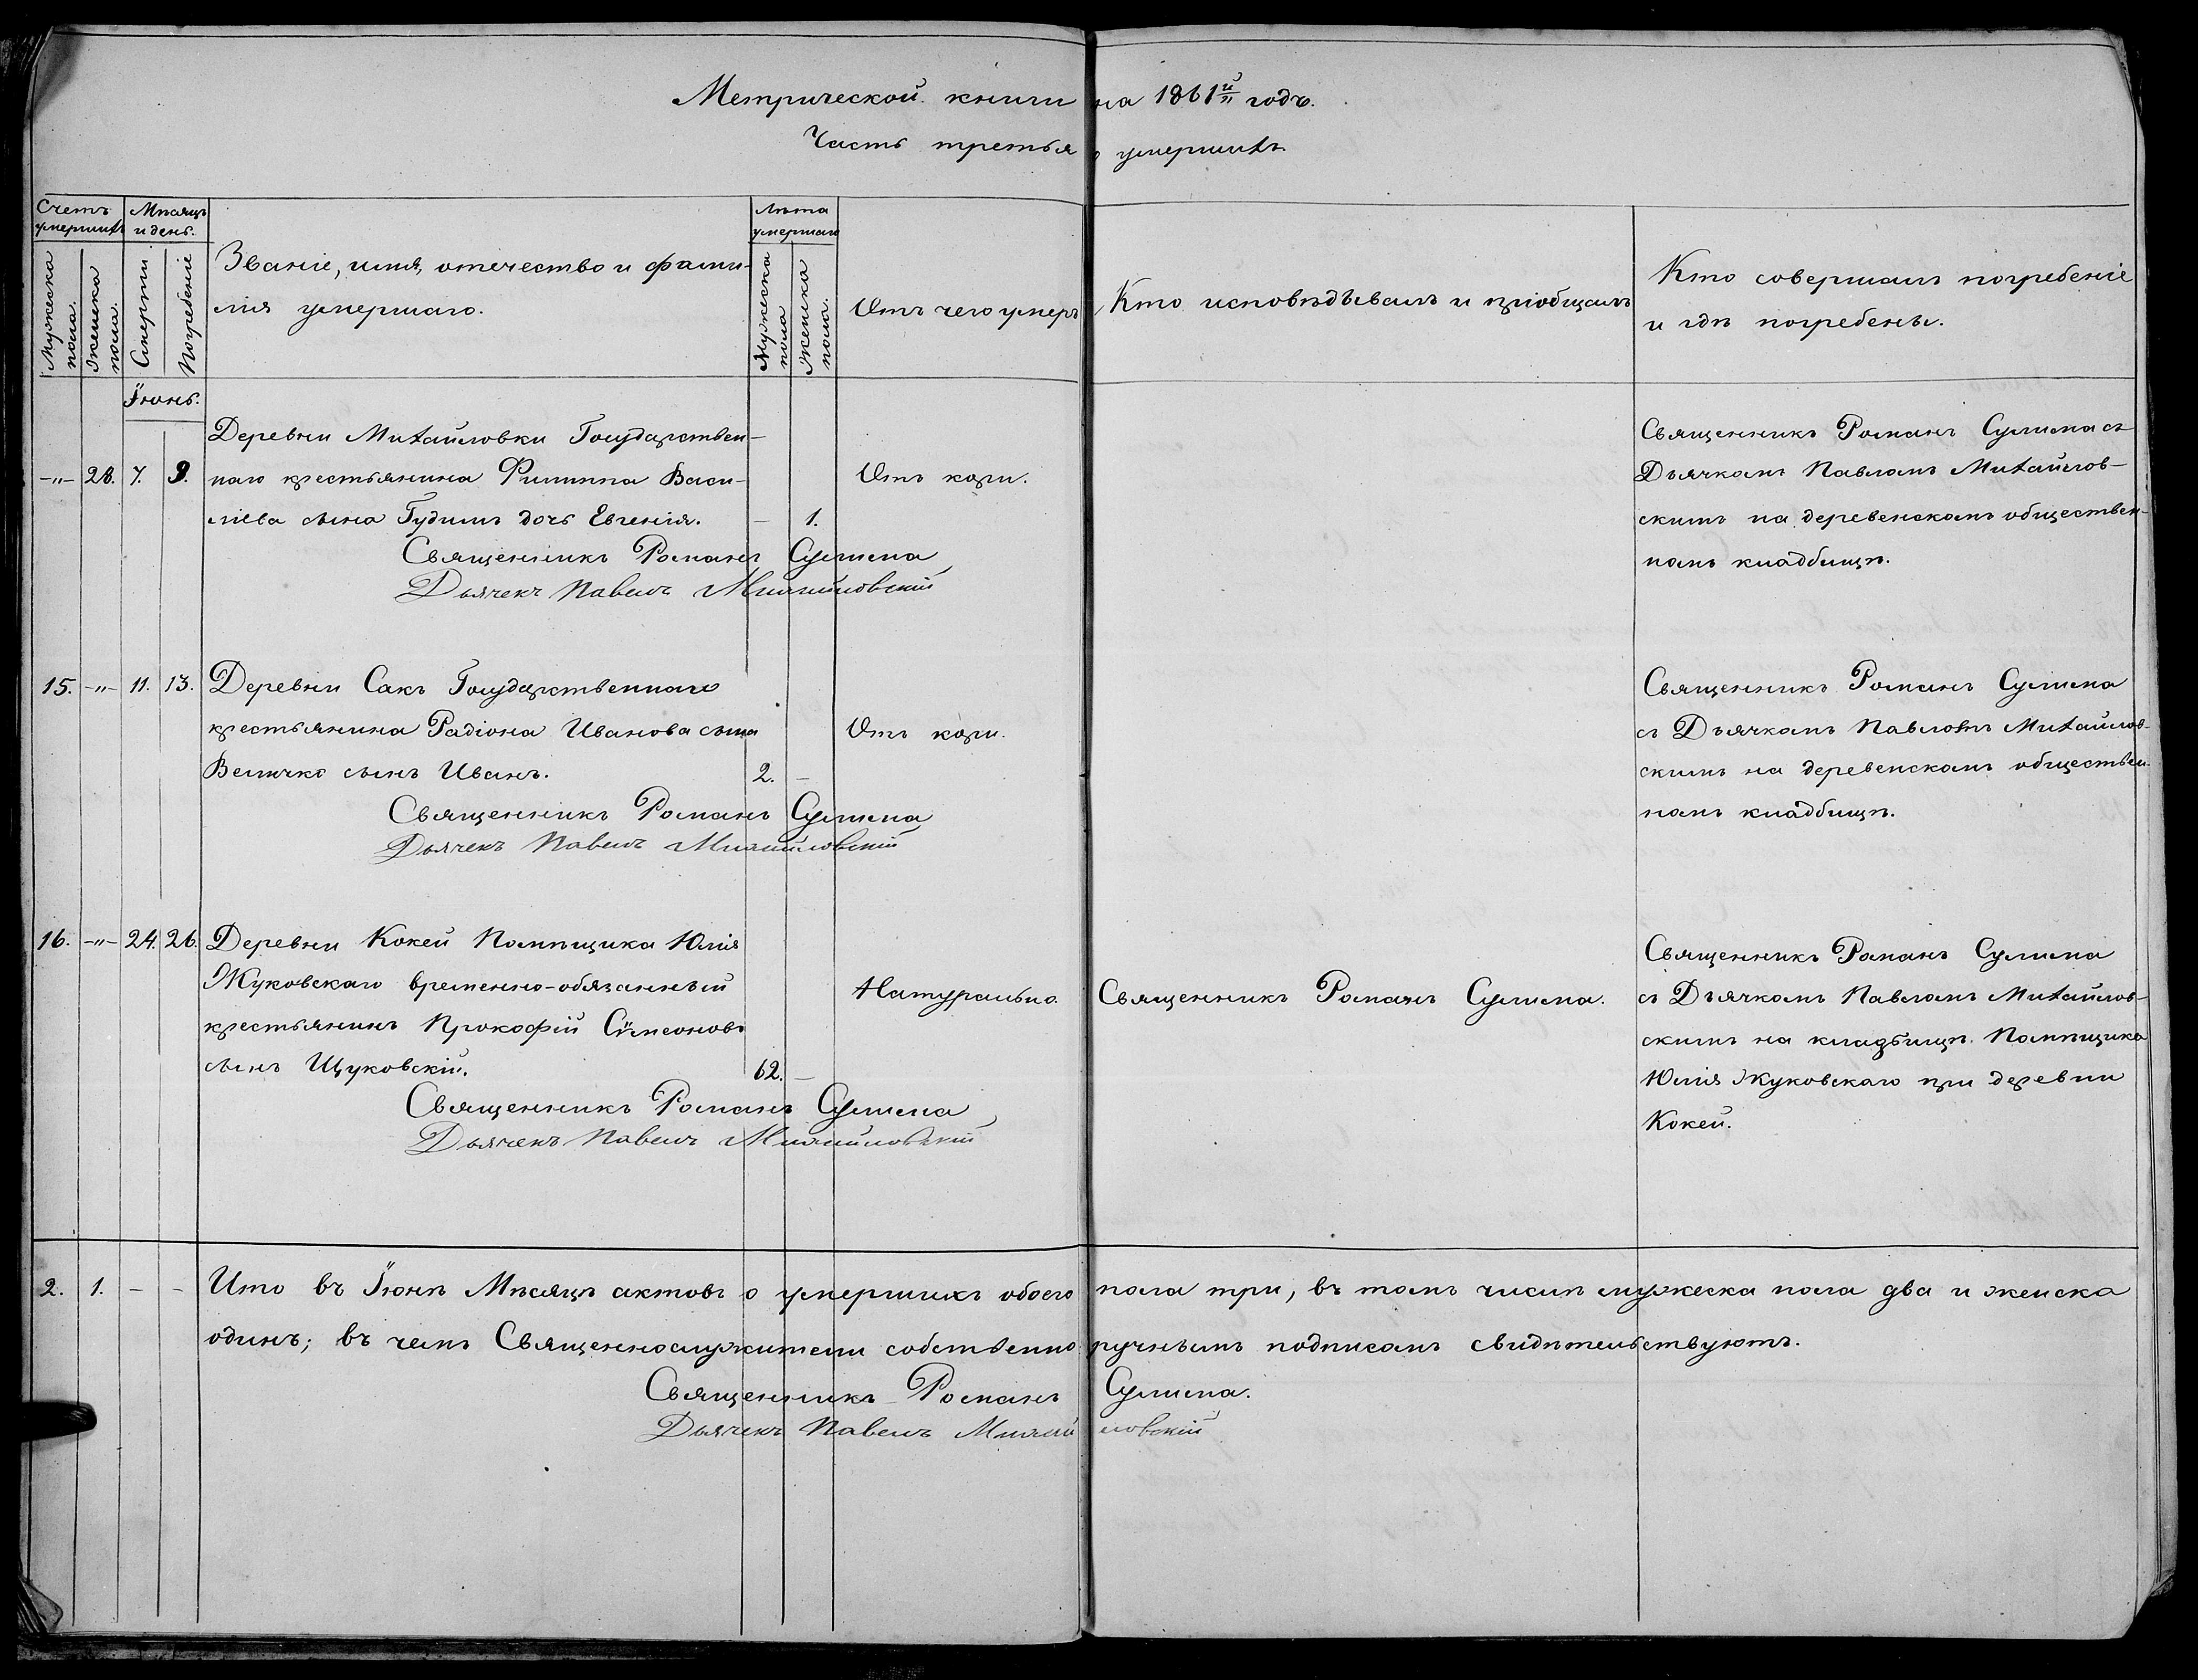 Метрической книги на 1861й годъ.
Часть третья о умершихъ
Счетъ умершихъ
Мѣсяцъ и день.
Мужеска пола.
Женска пола.
Смерти
Погребеніе
Званіе, имя, отечество и фами-
лія умершаго.
Лѣта умершаго
Мужеска пола
Женска пола.
Отъ чего умеръ
Кто исповѣдывалъ и пріобщалъ
Кто совершалъ погребеніе
и гдѣ погребены.
Іюнь.
Деревни Михайловки Государствен-
-"- 28. 7. 9. наго крестьянина Филиппа Васи-
ліева сына Гудимъ дочь Евгенія. - 1.
Отъ кори.
Священникъ Романъ Сулима
Дьячекъ Павелъ Михайловскій
Священникъ Романъ Сулима съ
Дьячкомъ Павломъ Михайлов-
скимъ на деревенскомъ обществен-
номъ кладбищѣ.
15. -"- 11. 13. Деревни Сакъ Государственнаго
крестьянина Радіона Иванова сына
Величко сынъ Иванъ. 2. -
Отъ кори.
Священникъ Романъ Сулима
Дьячекъ Павелъ Михайловскій
Священникъ Романъ Сулима
съ Дьячкомъ Павломъ Михайлов-
скимъ на деревенскомъ обществен-
номъ кладбищѣ.
16. -"- 24. 26. Деревни Кокей Помѣщика Юлія
Жуковскаго временно-обязанный
крестьянинъ Прокофій Сѵмеоновъ
сынъ Щуковскій. 62. -
Натурально.
Священникъ Романъ Сулима.
Священникъ Романъ Сулима
Дьячекъ Павелъ Михайловскій
Священникъ Романъ Сулима
съ Дьячкомъ Павломъ Михайлов-
скимъ на кладбищѣ Помѣщика
Юлія Жуковскаго при деревни
Кокей.
2. 1. - - Что въ Іюнѣ Мѣсяцѣ актовъ о умершихъ обоего пола три, въ томъ числѣ мужеска пола два и женска
одинъ; въ чемъ Священнослужители собственноручнымъ подписомъ свидѣтельствуютъ.
Священникъ Романъ Сулима.
Дьячекъ Павелъ Михайловскій